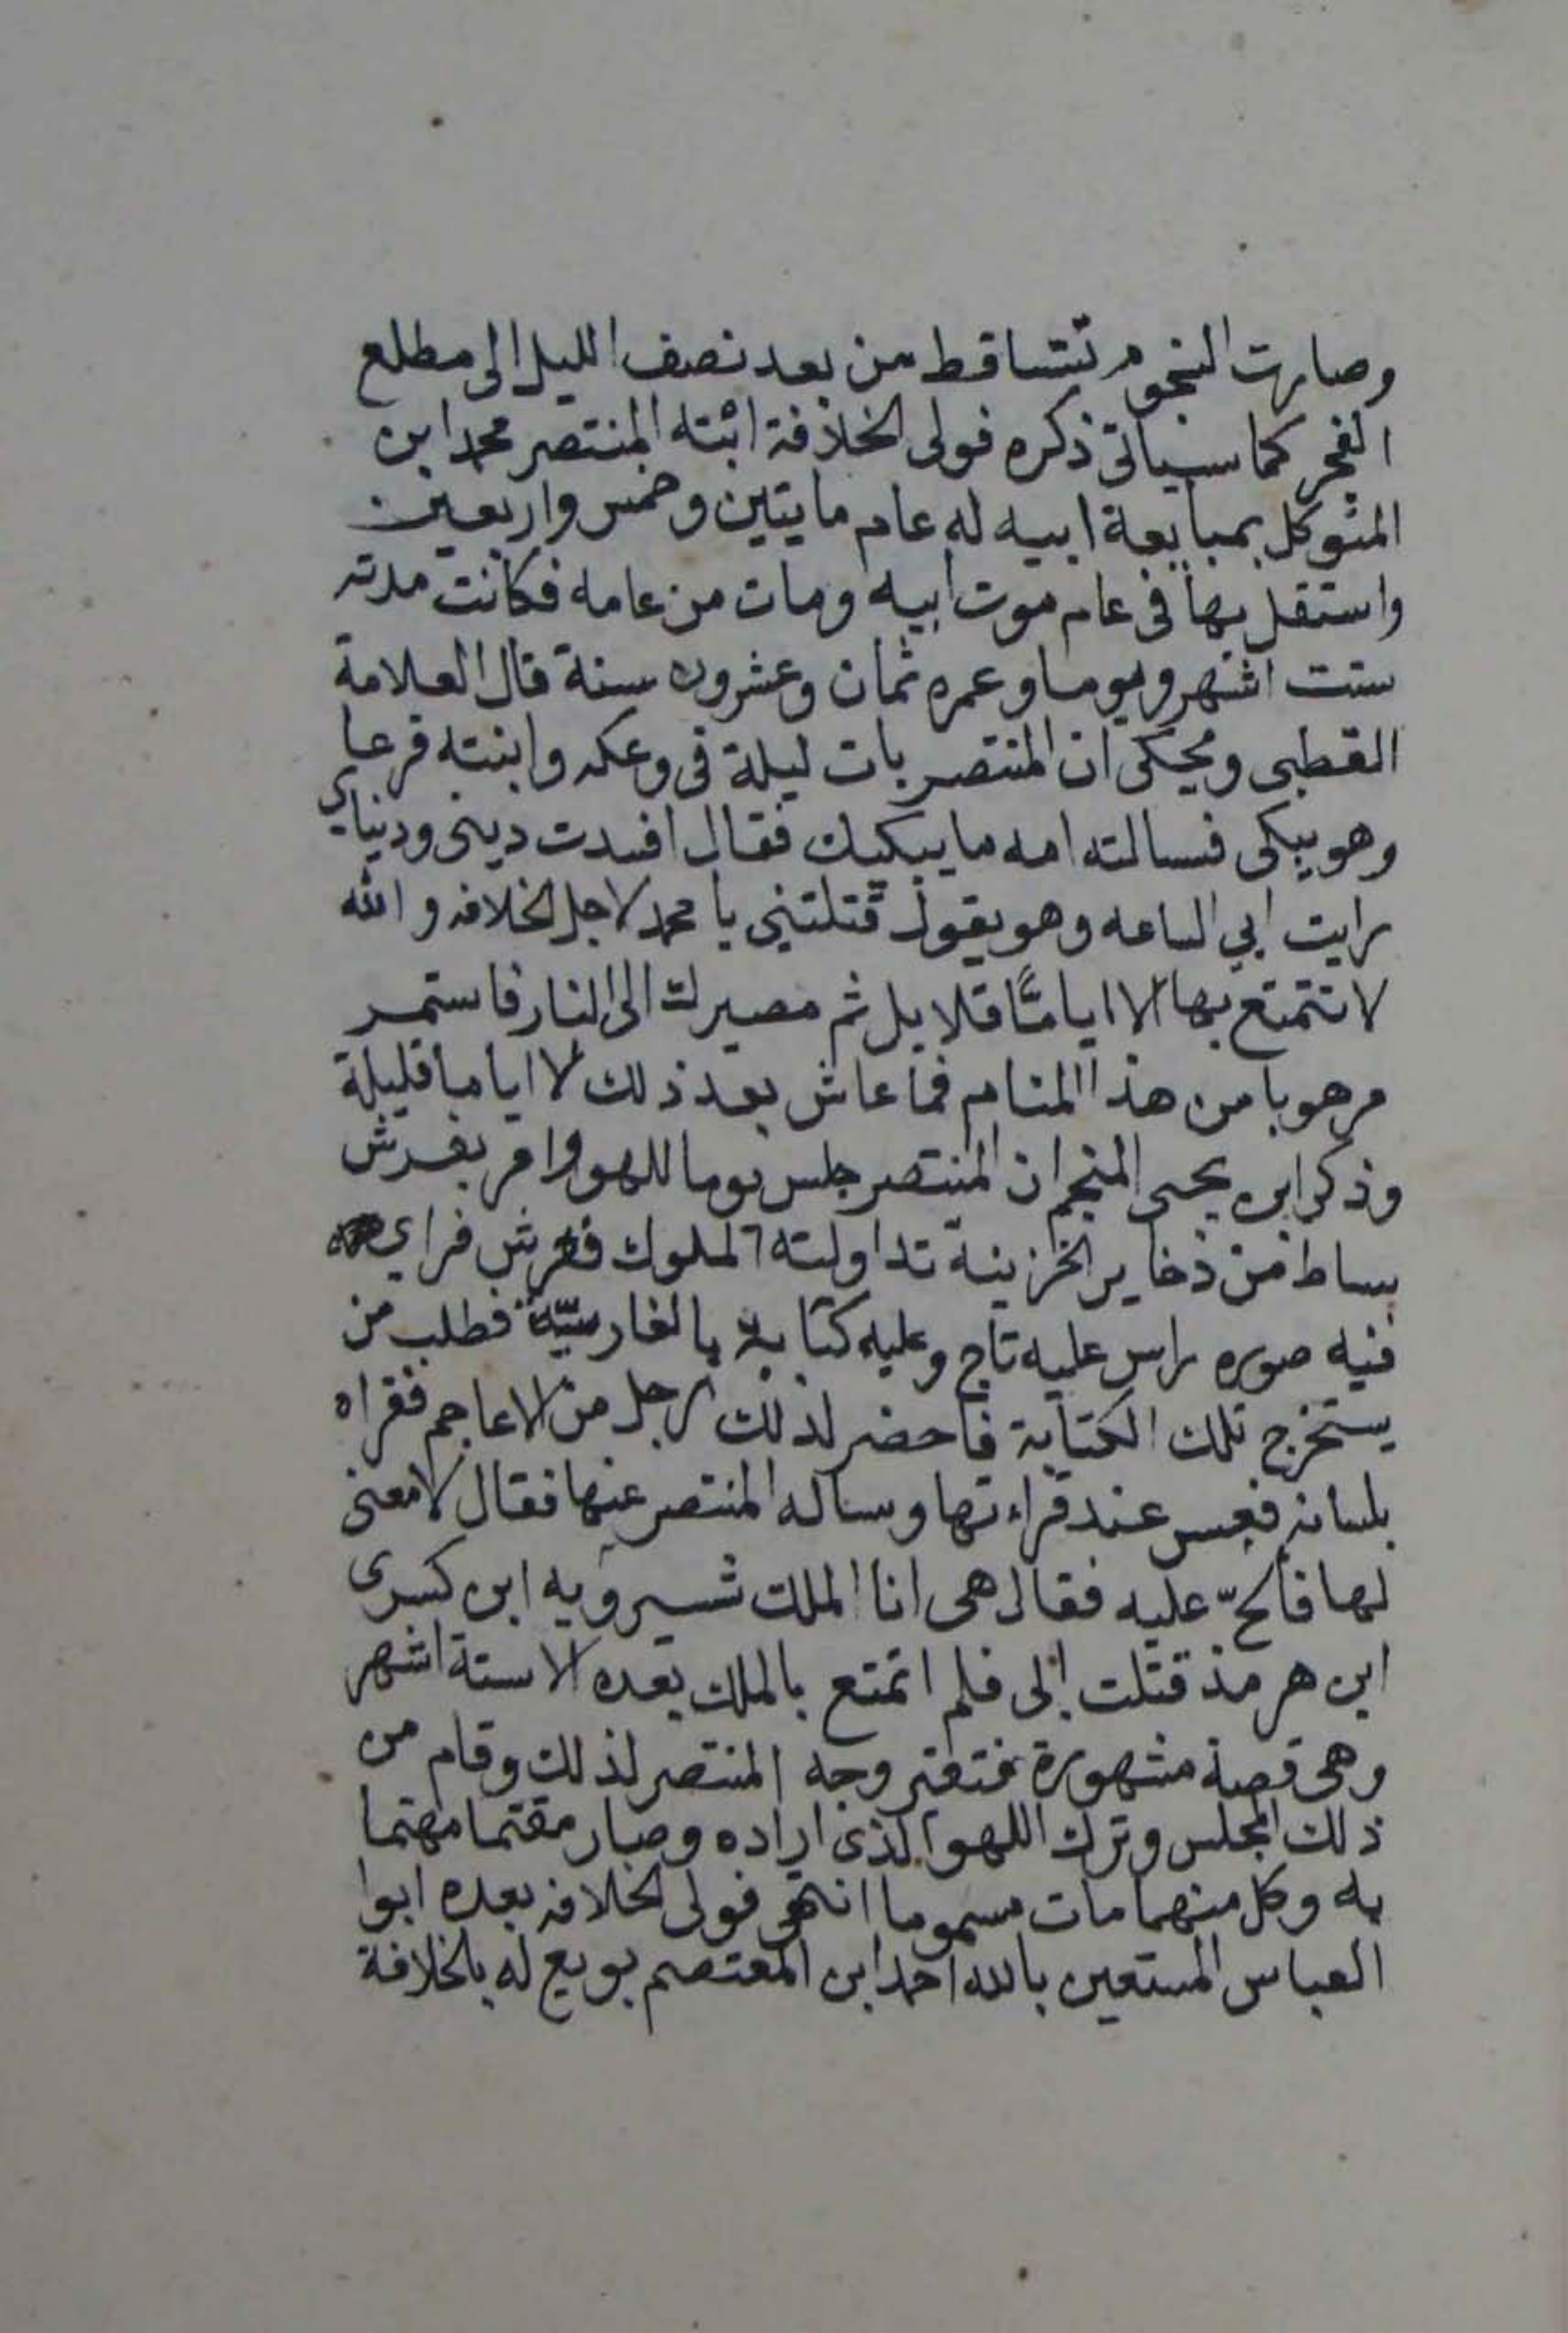 وصارت النجوم تتساقط من بعد نصف الليل الى مطلع
الفجر كما سياتى ذكره فولى الخلافة ابنه المنتصر محمد ابن
المتوكل بمبايعة ابيه له عام مايتين وخمس واربعين
واستقل بها فى عام موت ابيه ومات من عامه فكانت مدته
ستت اشهر ويوما وعمره ثمان وعشرون سنة قال العلامة
القطبى ويحكى ان المنتصر بات ليلة فى وعكه وانبته فزعا
وهو يبكى فسالته امه ما يبكيك فقال افسدت دينى ودنياي
رايت ابي الساعه وهو يقول قتلتني يا محمد لاجل الخلافه والله
لا تتمتع بها الا اياماً قلايل ثم مصيرك الى النار فاستمر
مرهوبا من هذا المنام فما عاش بعد ذلك الا اياما قليلة
وذكر ابن يحيى المنجم ان المنتصر جلس يوما للهو وامر بفرش
بساط من ذخاير الخزينة تداولته الملوك ففرش فراي
فيه صوره راس عليه تاج وعليه كتابة بالفارسيّة فطلب من
يستخرج تلك الكتابة فاحضر لذلك رجل من الاعاجم فقراه
بلسانه فعبس عند قراءتها وساله المنتصر عنها فقال لا معنى
لها فألحّ عليه فقال هى انا الملك شيرويه ابن كسرى
ابن هرمذ قتلت ابى فلم اتمتع بالملك بعده الا ستة اشهر
وهى قصة مشهورة فتغير وجه المنتصر لذلك وقام من
ذلك المجلس وترك اللهو الذى اراده وصار مغتما مهتما
به وكل منهما مات مسموما انتهى فولى الخلافه بعده ابوا
العباس المستعين بالله احمد ابن المعتصم بويع له بالخلافة